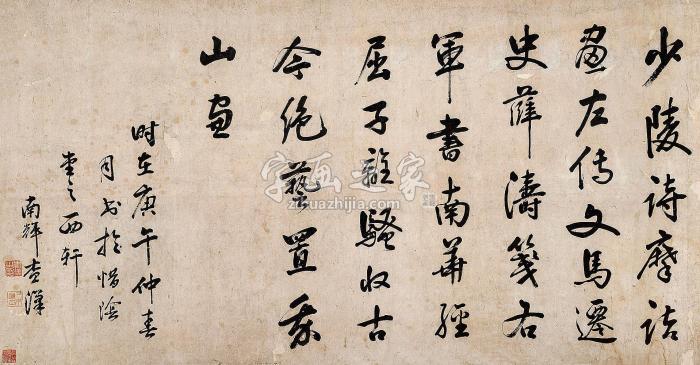 少陵詩摩詰
畫左傳文馬遷
史薛濤箋右
軍書南華經
屈子離騷收古
今絕藝置我
山窗
时在庚午仲春
月书於惜陰
堂之西軒
南輝
字画之家
zihuazhijia.com